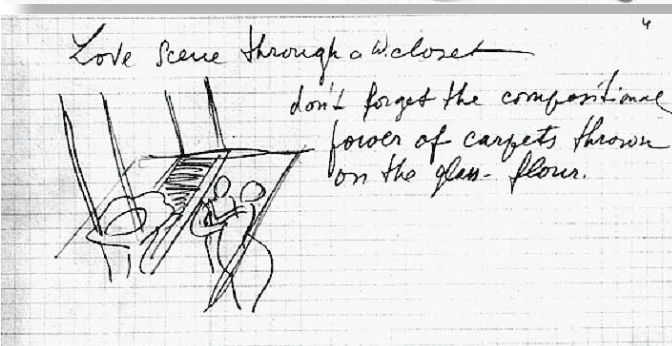 4
Love Scene through a W.closet
don't forget the compositional
power of carpets thrown
on the glass-floor.